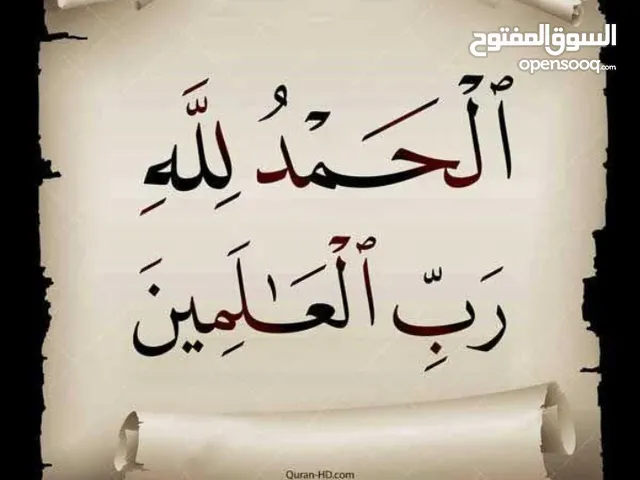 السوق المفتوح
opensooq.com
ٱلْحَمْدُ لِلَّهِ
رَبِّ ٱلْعَـٰلَمِينَ
Quran-HD.com